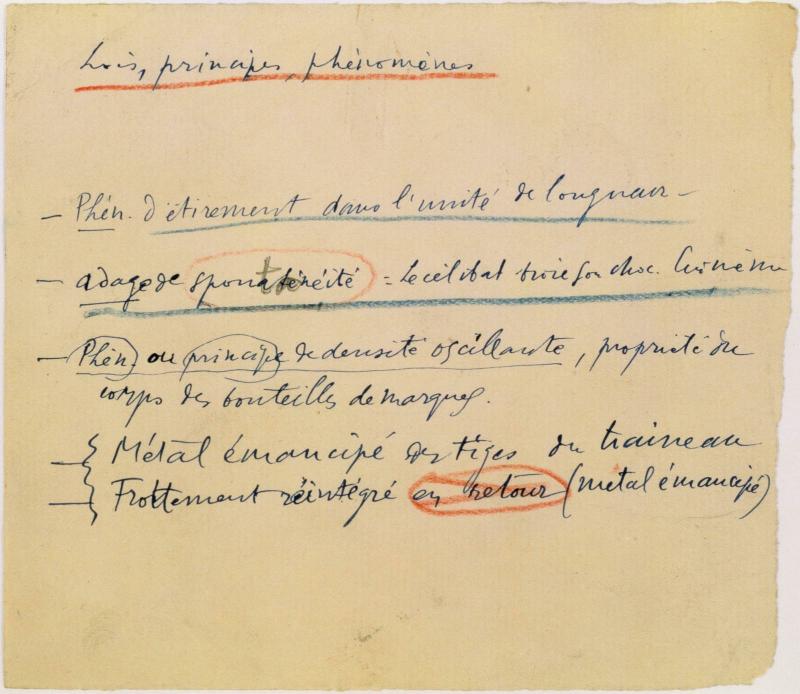 Lois, principes, phénomènes
– Phén. d'étirement dans l'unité de longueur –
– adage de spontanéité = le célibat broie son choc.
– Phén. ou principe de densité oscillante, propriété du
corps des bouteilles de marques.
– Métal émancipé des tiges du traineau
– Frottement réintégré en retour (métal émancipé)